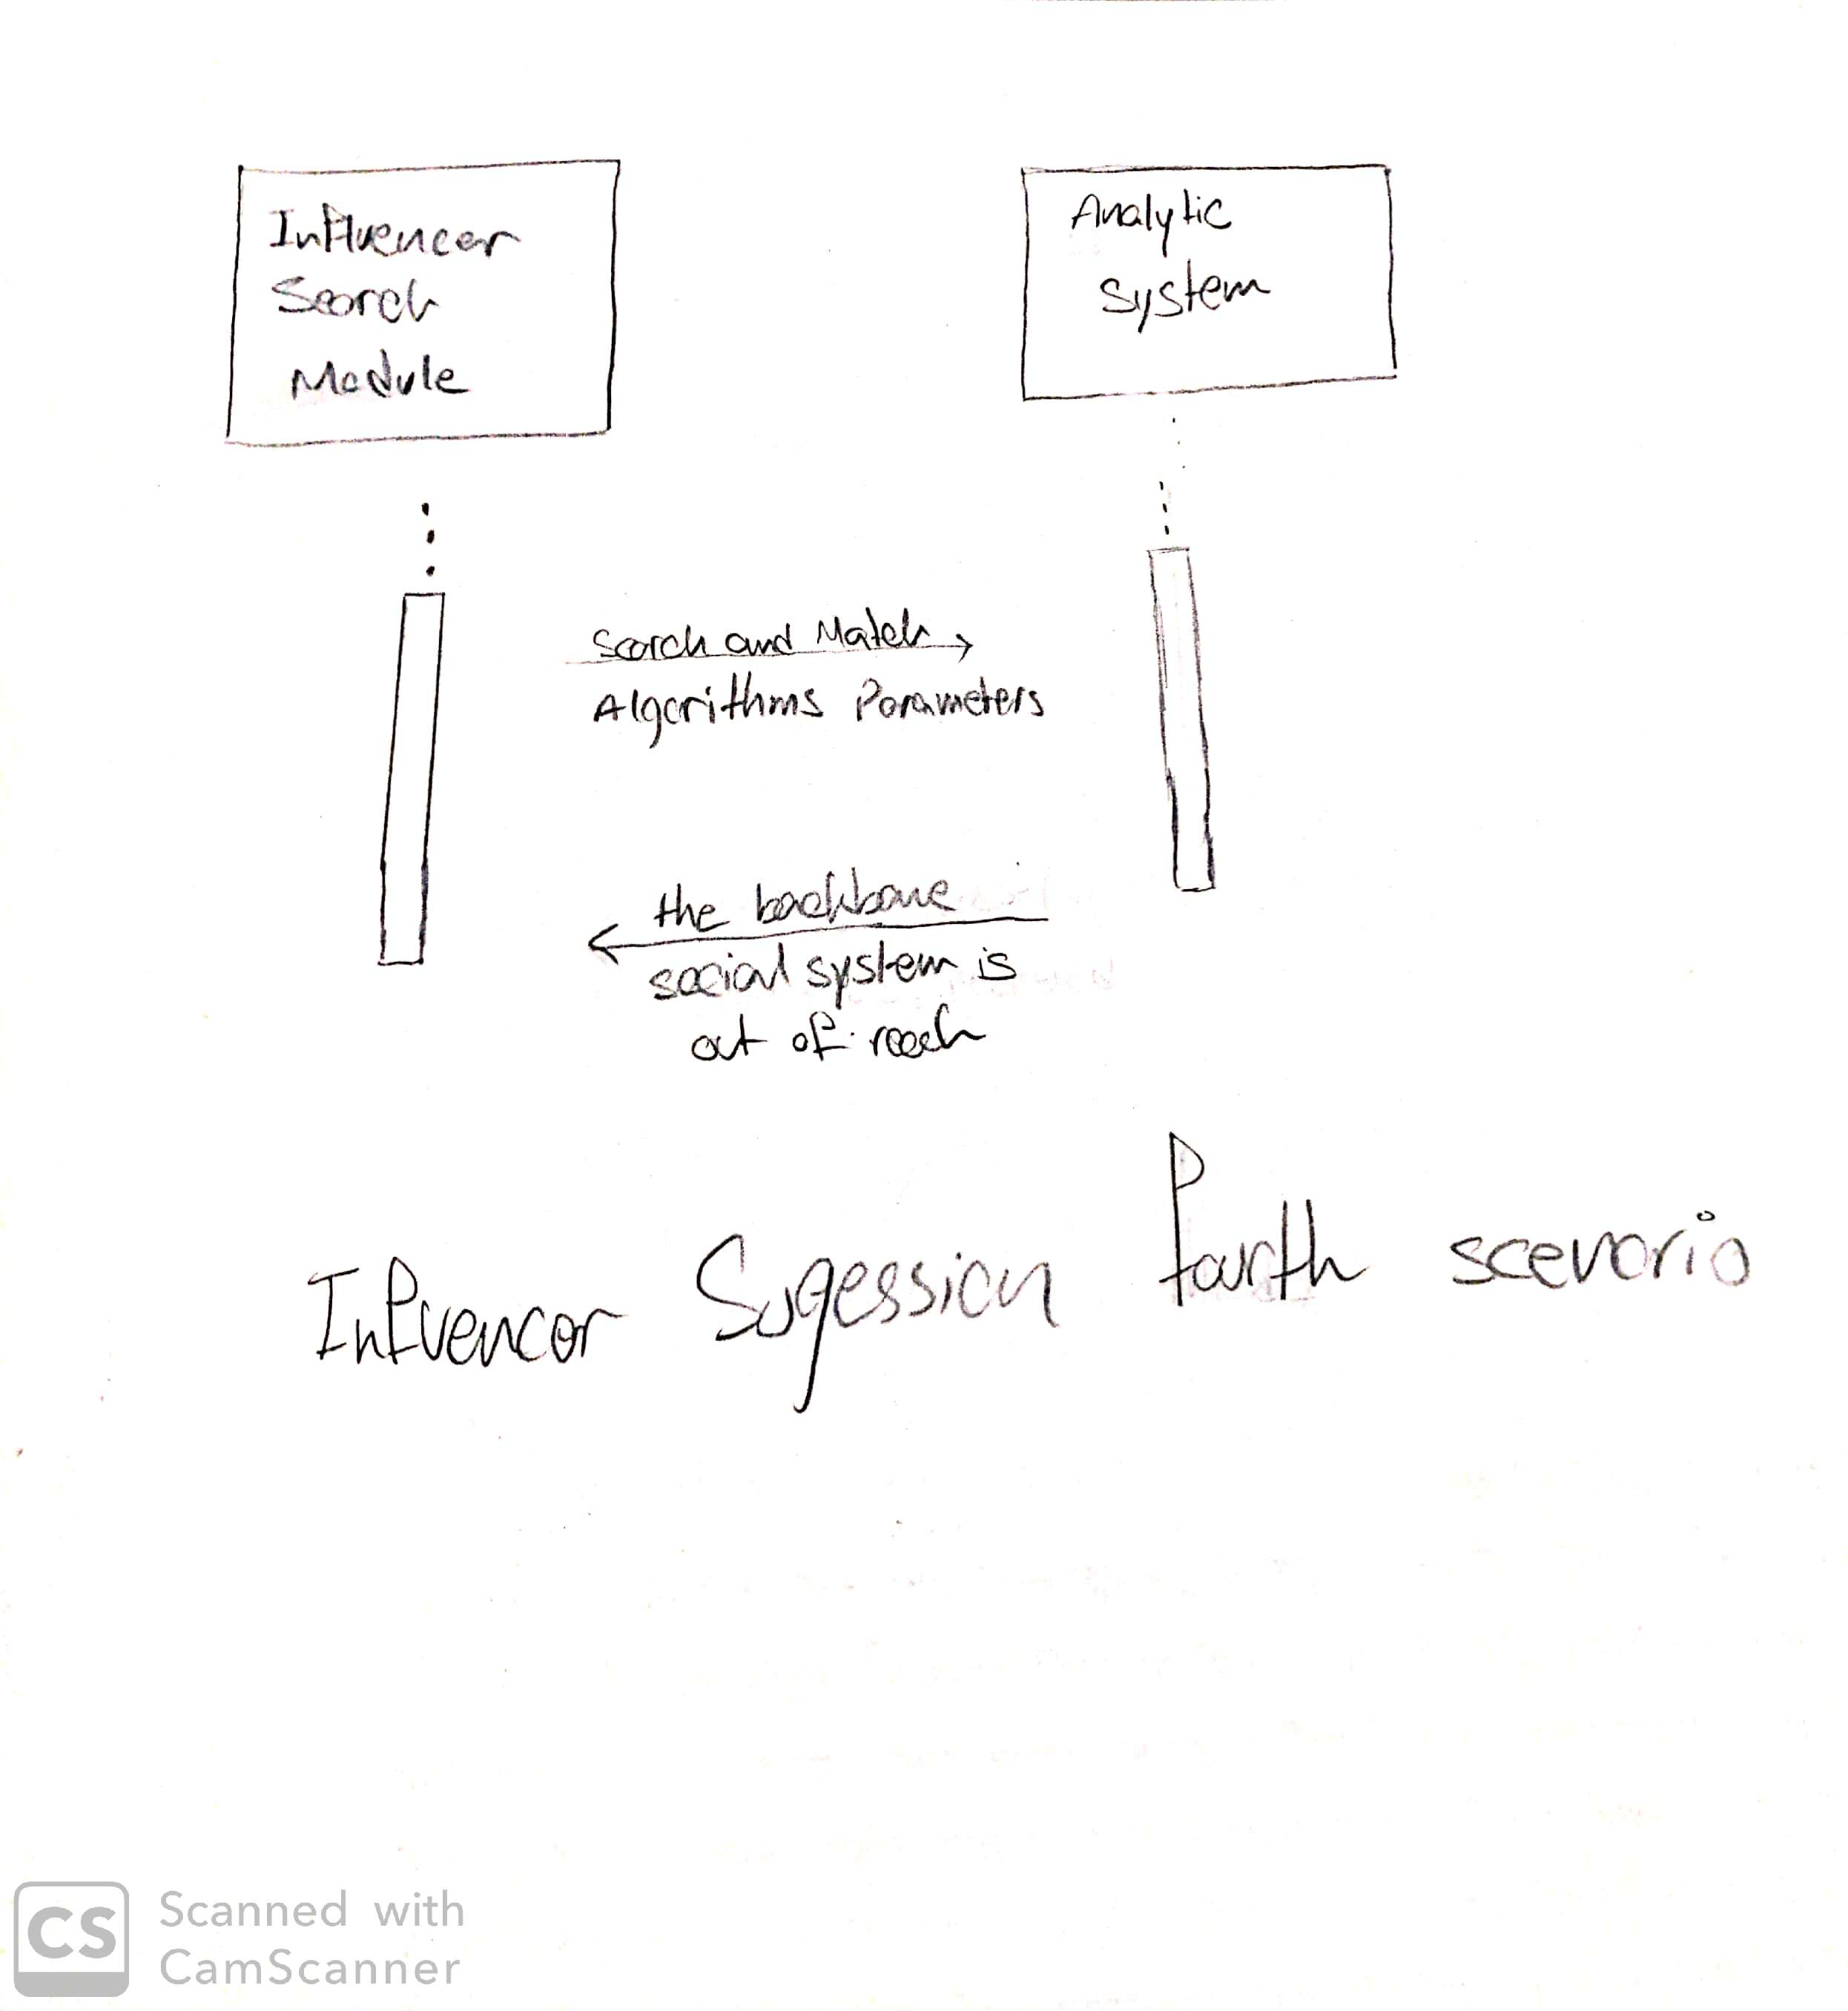 Influencer
Search
Module
Analytic
System
Search and Match
Algorithms Parameters
the backbone
social system is
out of reach
Influencer Sugession fourth scenario
CS
Scanned with
CamScanner